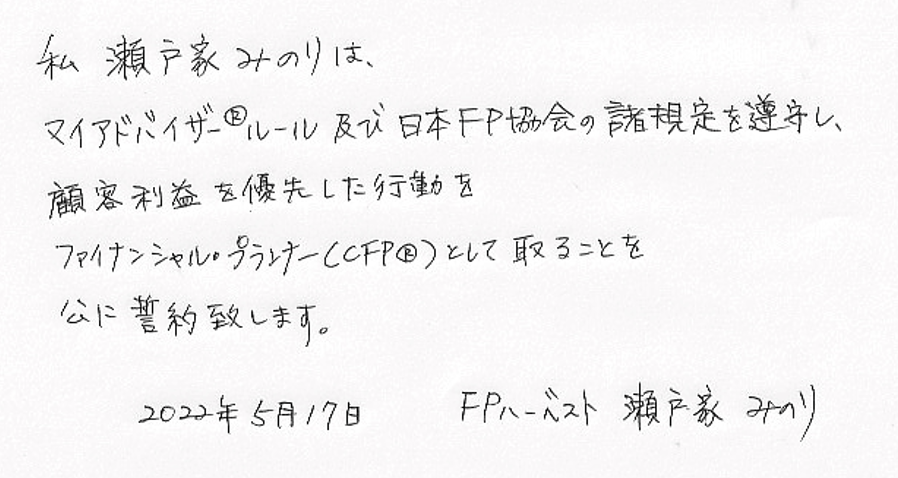 私 瀬戸家 みのりは、
マイアドバイザー®ルール 及び 日本FP協会の諸規定を遵守し、
顧客利益を優先した行動を
ファイナンシャル・プランナー(CFP®)として 取ることを
公に誓約致します。
2022年5月17日 FPハーベスト 瀬戸家 みのり